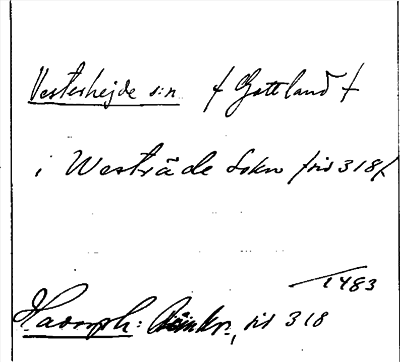 Vesterhejde s:n. / Gottland /
i Westräde Sokn sid 318/
1483
Hadorph: Rimkr:, sid 318